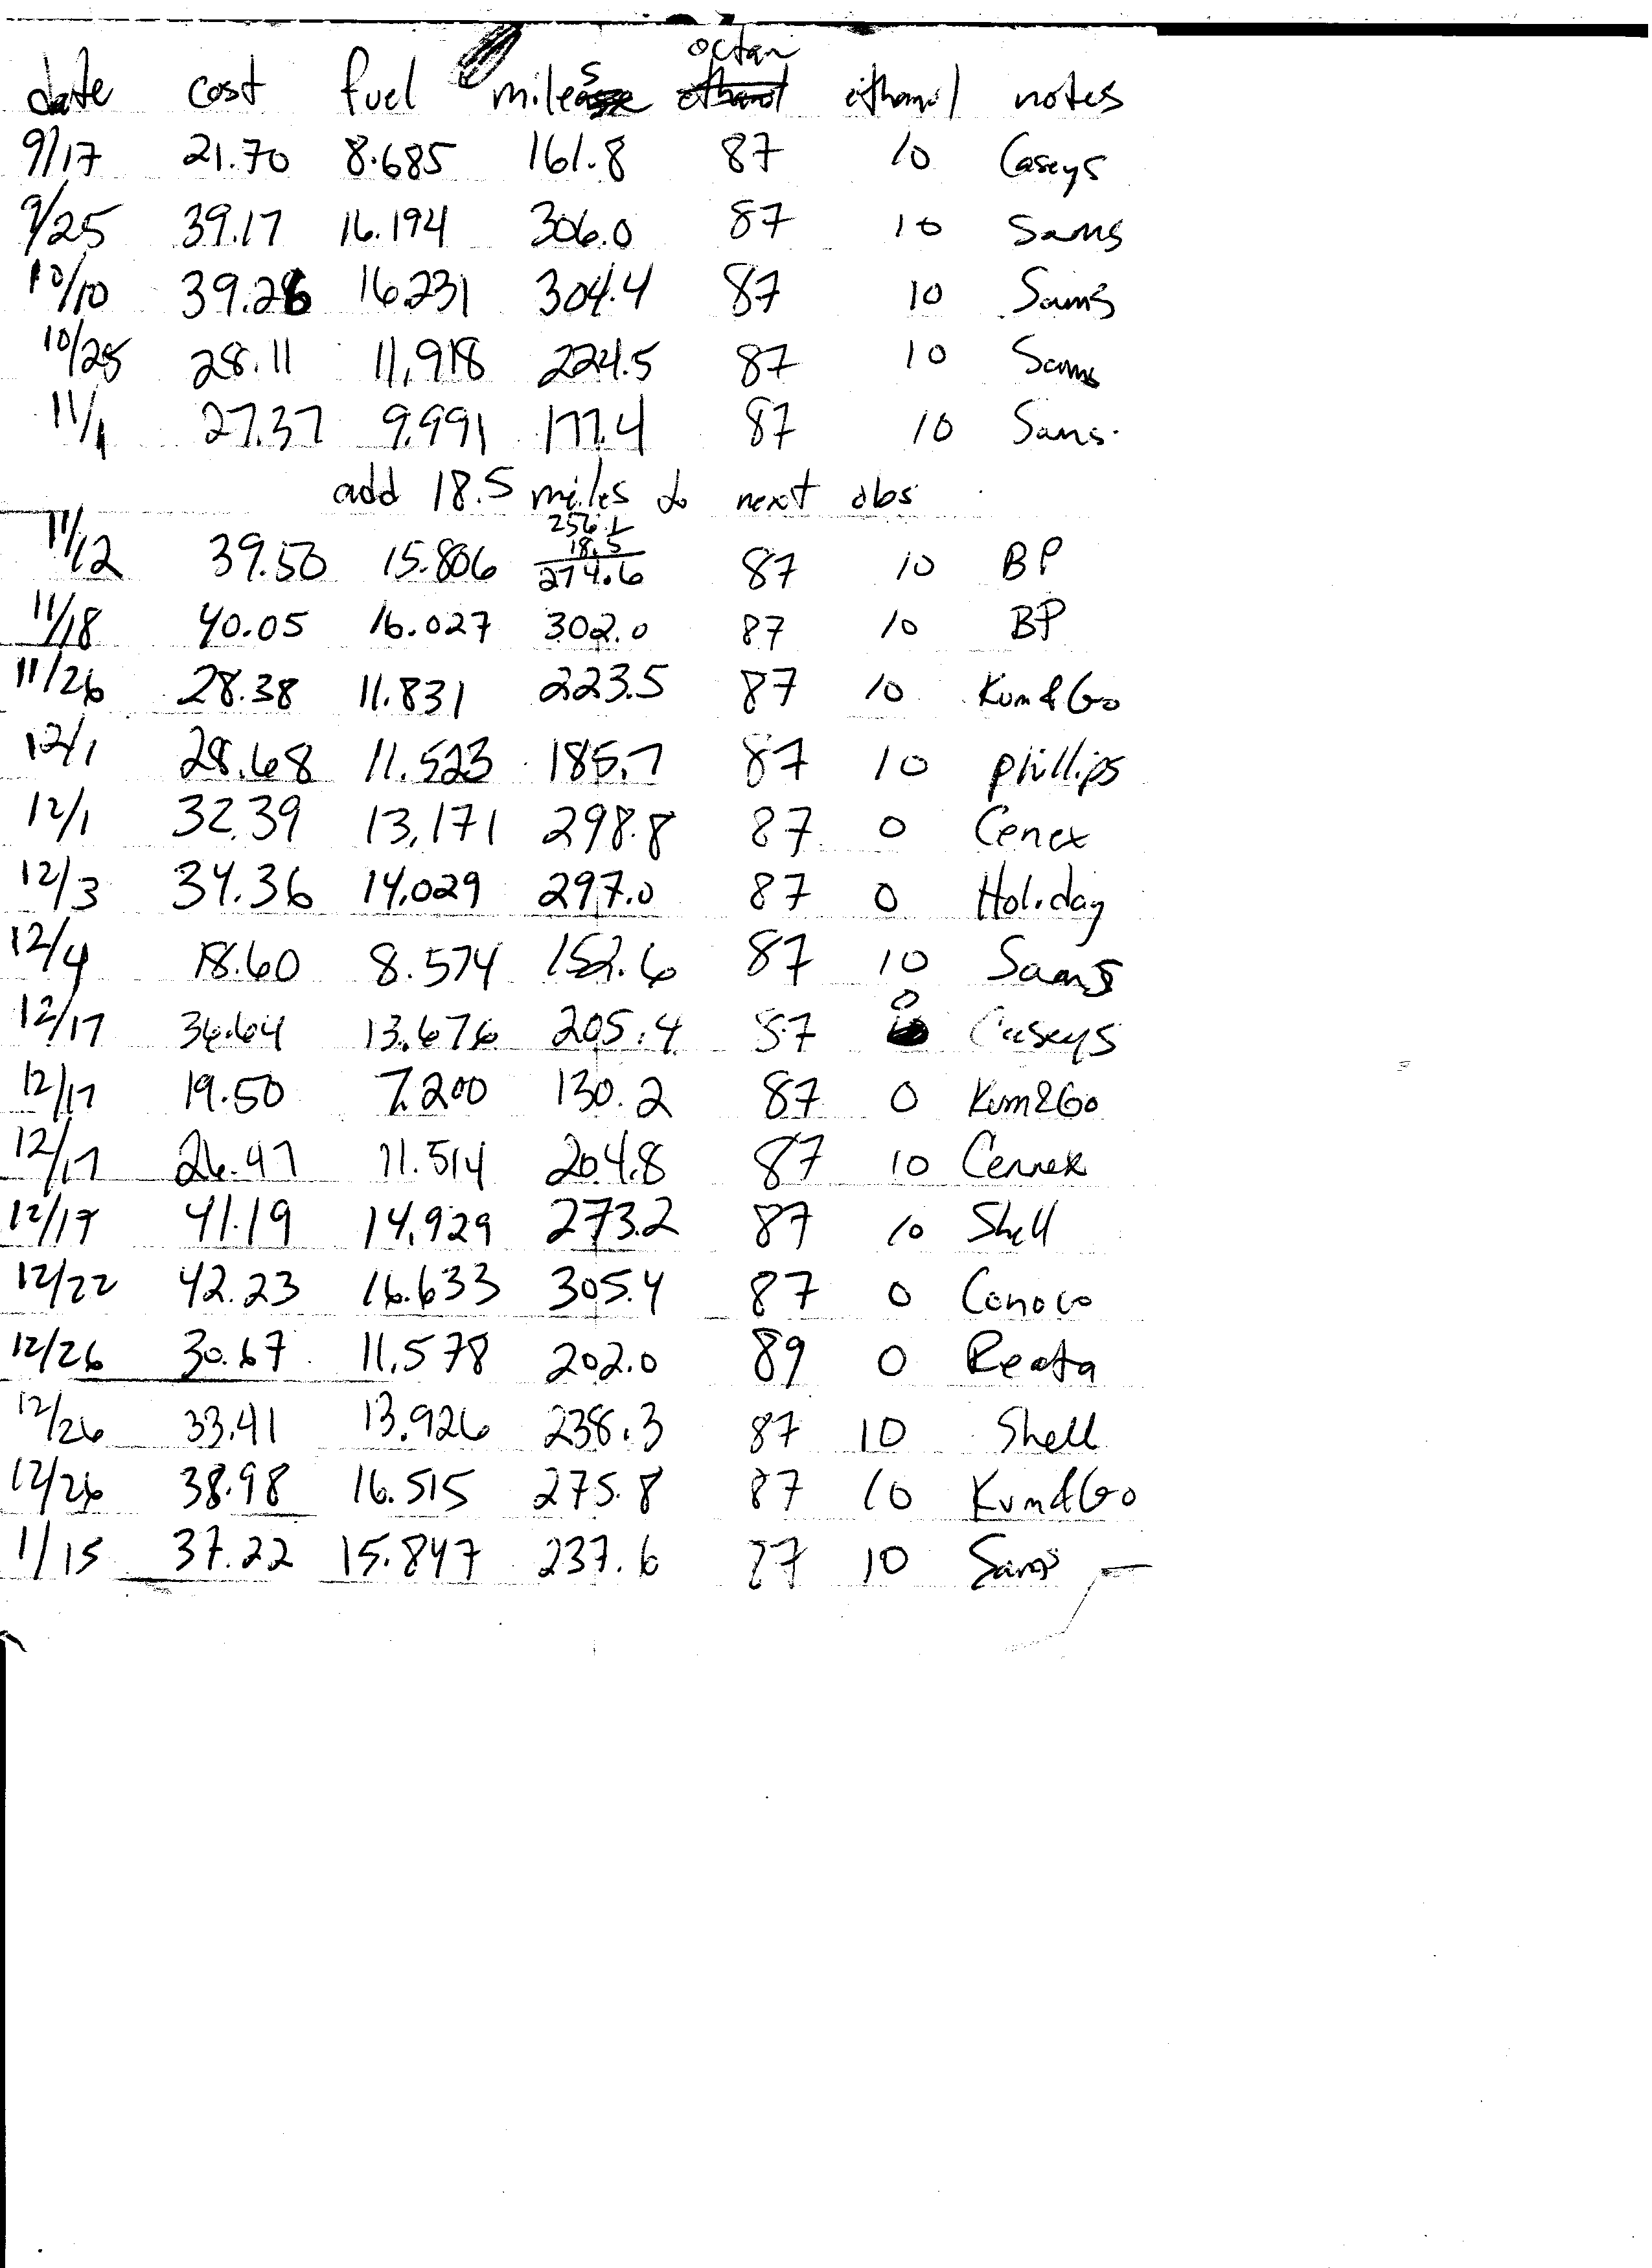 date cost fuel miles octan ethanol notes
9/17 21.70 8.685 161.8 87 10 Caseys
9/25 39.17 16.194 306.0 87 10 Sams
10/10 39.26 16.231 304.4 87 10 Sams
10/25 28.11 11.918 224.5 87 10 Sams
11/1 27.37 9.991 177.4 87 10 Sams
add 18.5 miles to next obs
256.1
18.5
11/12 39.50 15.806 274.6 87 10 BP
11/18 40.05 16.027 302.0 87 10 BP
11/26 28.38 11.831 223.5 87 10 Kum&Go
12/1 28.68 11.523 185.7 87 10 phillips
12/1 32.39 13.171 298.8 87 0 Cenex
12/3 34.36 14.029 297.0 87 0 Holiday
12/4 18.60 8.574 152.6 87 10 Sams
12/17 36.64 13.676 205.4 87 0 Caseys
12/17 19.50 7.200 130.2 87 0 Kum&Go
12/17 26.97 11.514 204.8 87 10 Cennex
12/17 41.19 14.929 273.2 87 10 Shell
12/22 42.23 16.633 305.4 87 0 Conoco
12/26 30.67 11.578 202.0 89 0 Reata
12/26 33.41 13.926 238.3 87 10 Shell
12/26 38.98 16.515 275.8 87 10 Kum&Go
1/15 37.22 15.847 237.6 87 10 Sams